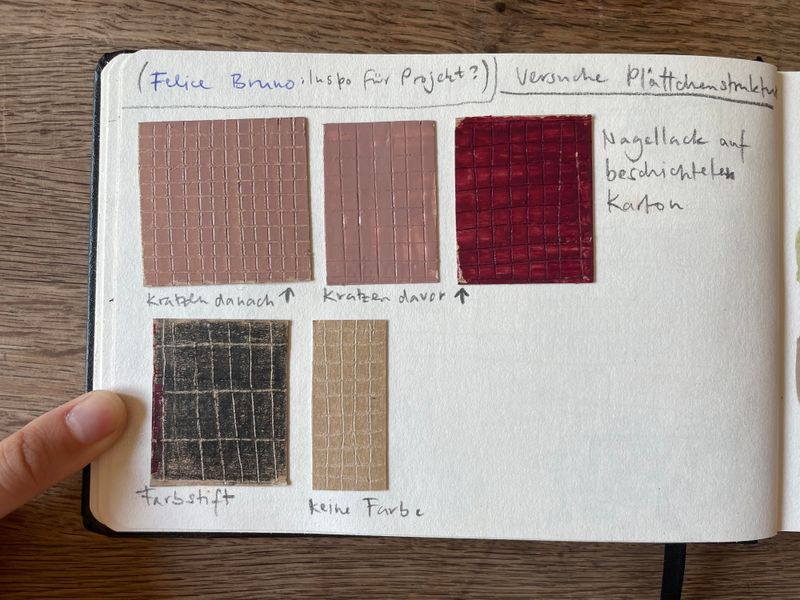 (Felice Bruno: Inspo für Projekt?) Versuche Plättchenstruktur
Nagellack auf
beschichteten
Karton
Kratzen danach ↑
Kratzen davor ↑
Farbstift
keine Farbe